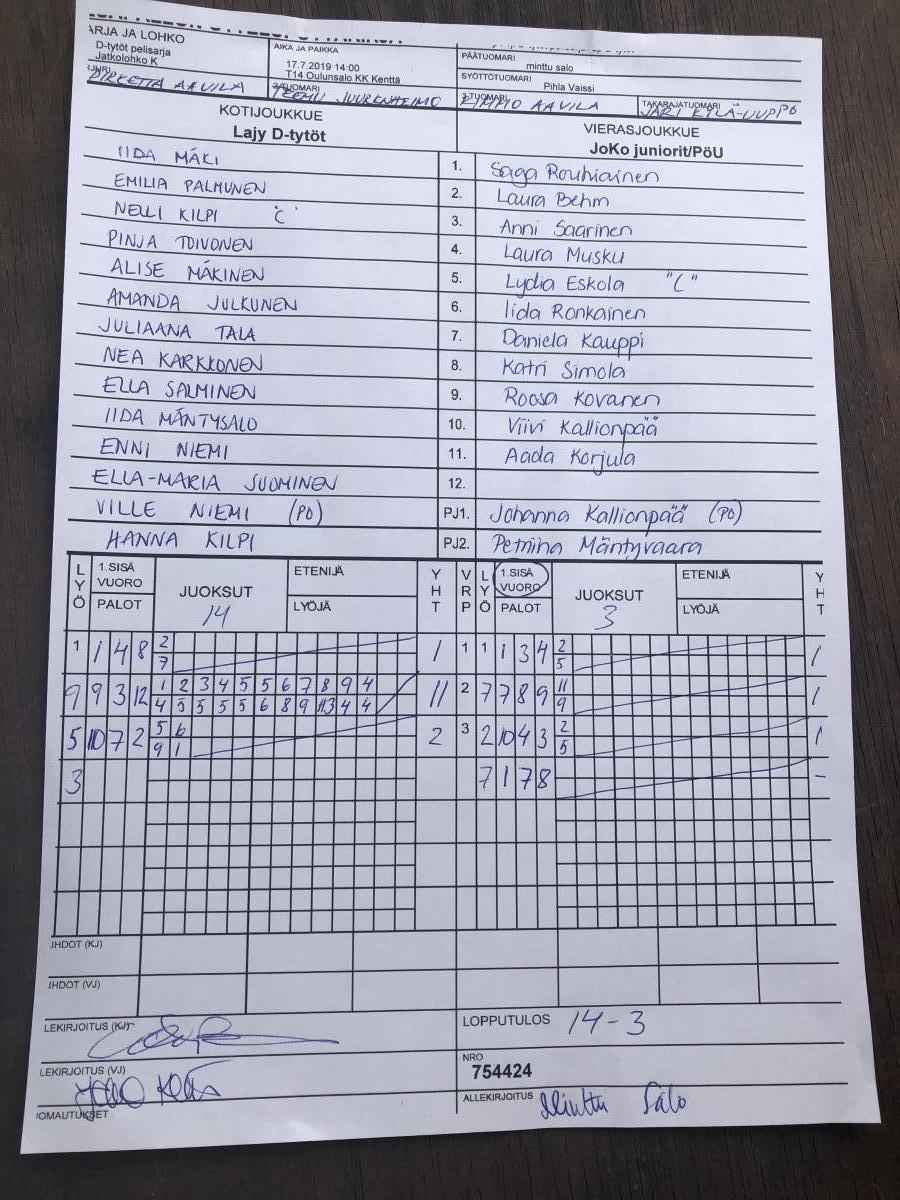 ARJA JA LOHKO
D-tytöt pelisarja
Jatkolohko K
AIKA JA PAIKKA
17.7.2019 14:00
T14 Oulunsalo KK Kenttä
PÄÄTUOMARI
minttu salo
SYÖTTÖTUOMARI
Pihla Vaissi
PIRKETTA AAVILA
2-TUOMARI
TEEMU JUURENHEIMO
3-TUOMARI
KIMMO AAVILA
TAKARAJATUOMARI
JARI KYLÄ-UUPPO
KOTIJOUKKUE
Lajy D-tytöt
VIERASJOUKKUE
JoKo juniorit/PöU
IIDA MÄKI 1. Saga Rouhiainen
EMILIA PALMUNEN 2. Laura Behm
NELLI KILPI "C" 3. Anni Saarinen
PINJA TOIVONEN 4. Laura Musku
ALISE MÄKINEN 5. Lydia Eskola "C"
AMANDA JULKUNEN 6. Iida Ronkainen
JULIAANA TALA 7. Daniela Kauppi
NEA KARKKONEN 8. Katri Simola
ELLA SALMINEN 9. Roosa Kovanen
IIDA MÄNTYSALO 10. Viivi Kallionpää
ENNI NIEMI 11. Aada Korjula
ELLA-MARIA SUOMINEN 12.
VILLE NIEMI (PO) PJ1. Johanna Kallionpää (PO)
HANNA KILPI PJ2. Petriina Mäntyvaara
LYÖ 1.SISÄ VUORO PALOT JUOKSUT 14 ETENIJÄ LYÖJÄ YHT VRP LYÖ 1.SISÄ VUORO PALOT JUOKSUT 3 ETENIJÄ LYÖJÄ YHT
1 1 4 8 2 1 1 1 1 3 4 2 1
7 5
9 9 3 12 1 2 3 4 5 5 6 7 8 9 4 11 2 7 7 8 9 11 1
4 5 5 5 5 6 8 9 113 4 4 9
5 10 7 2 5 6 2 3 2 10 4 3 2 1
9 1 5
3 7 1 7 8 -
IHDOT (KJ)
IHDOT (VJ)
LEKIRJOITUS (KJ)
LOPPUTULOS 14-3
LEKIRJOITUS (VJ)
NRO
754424
ALLEKIRJOITUS Minttu Salo
OMAUTUKSET